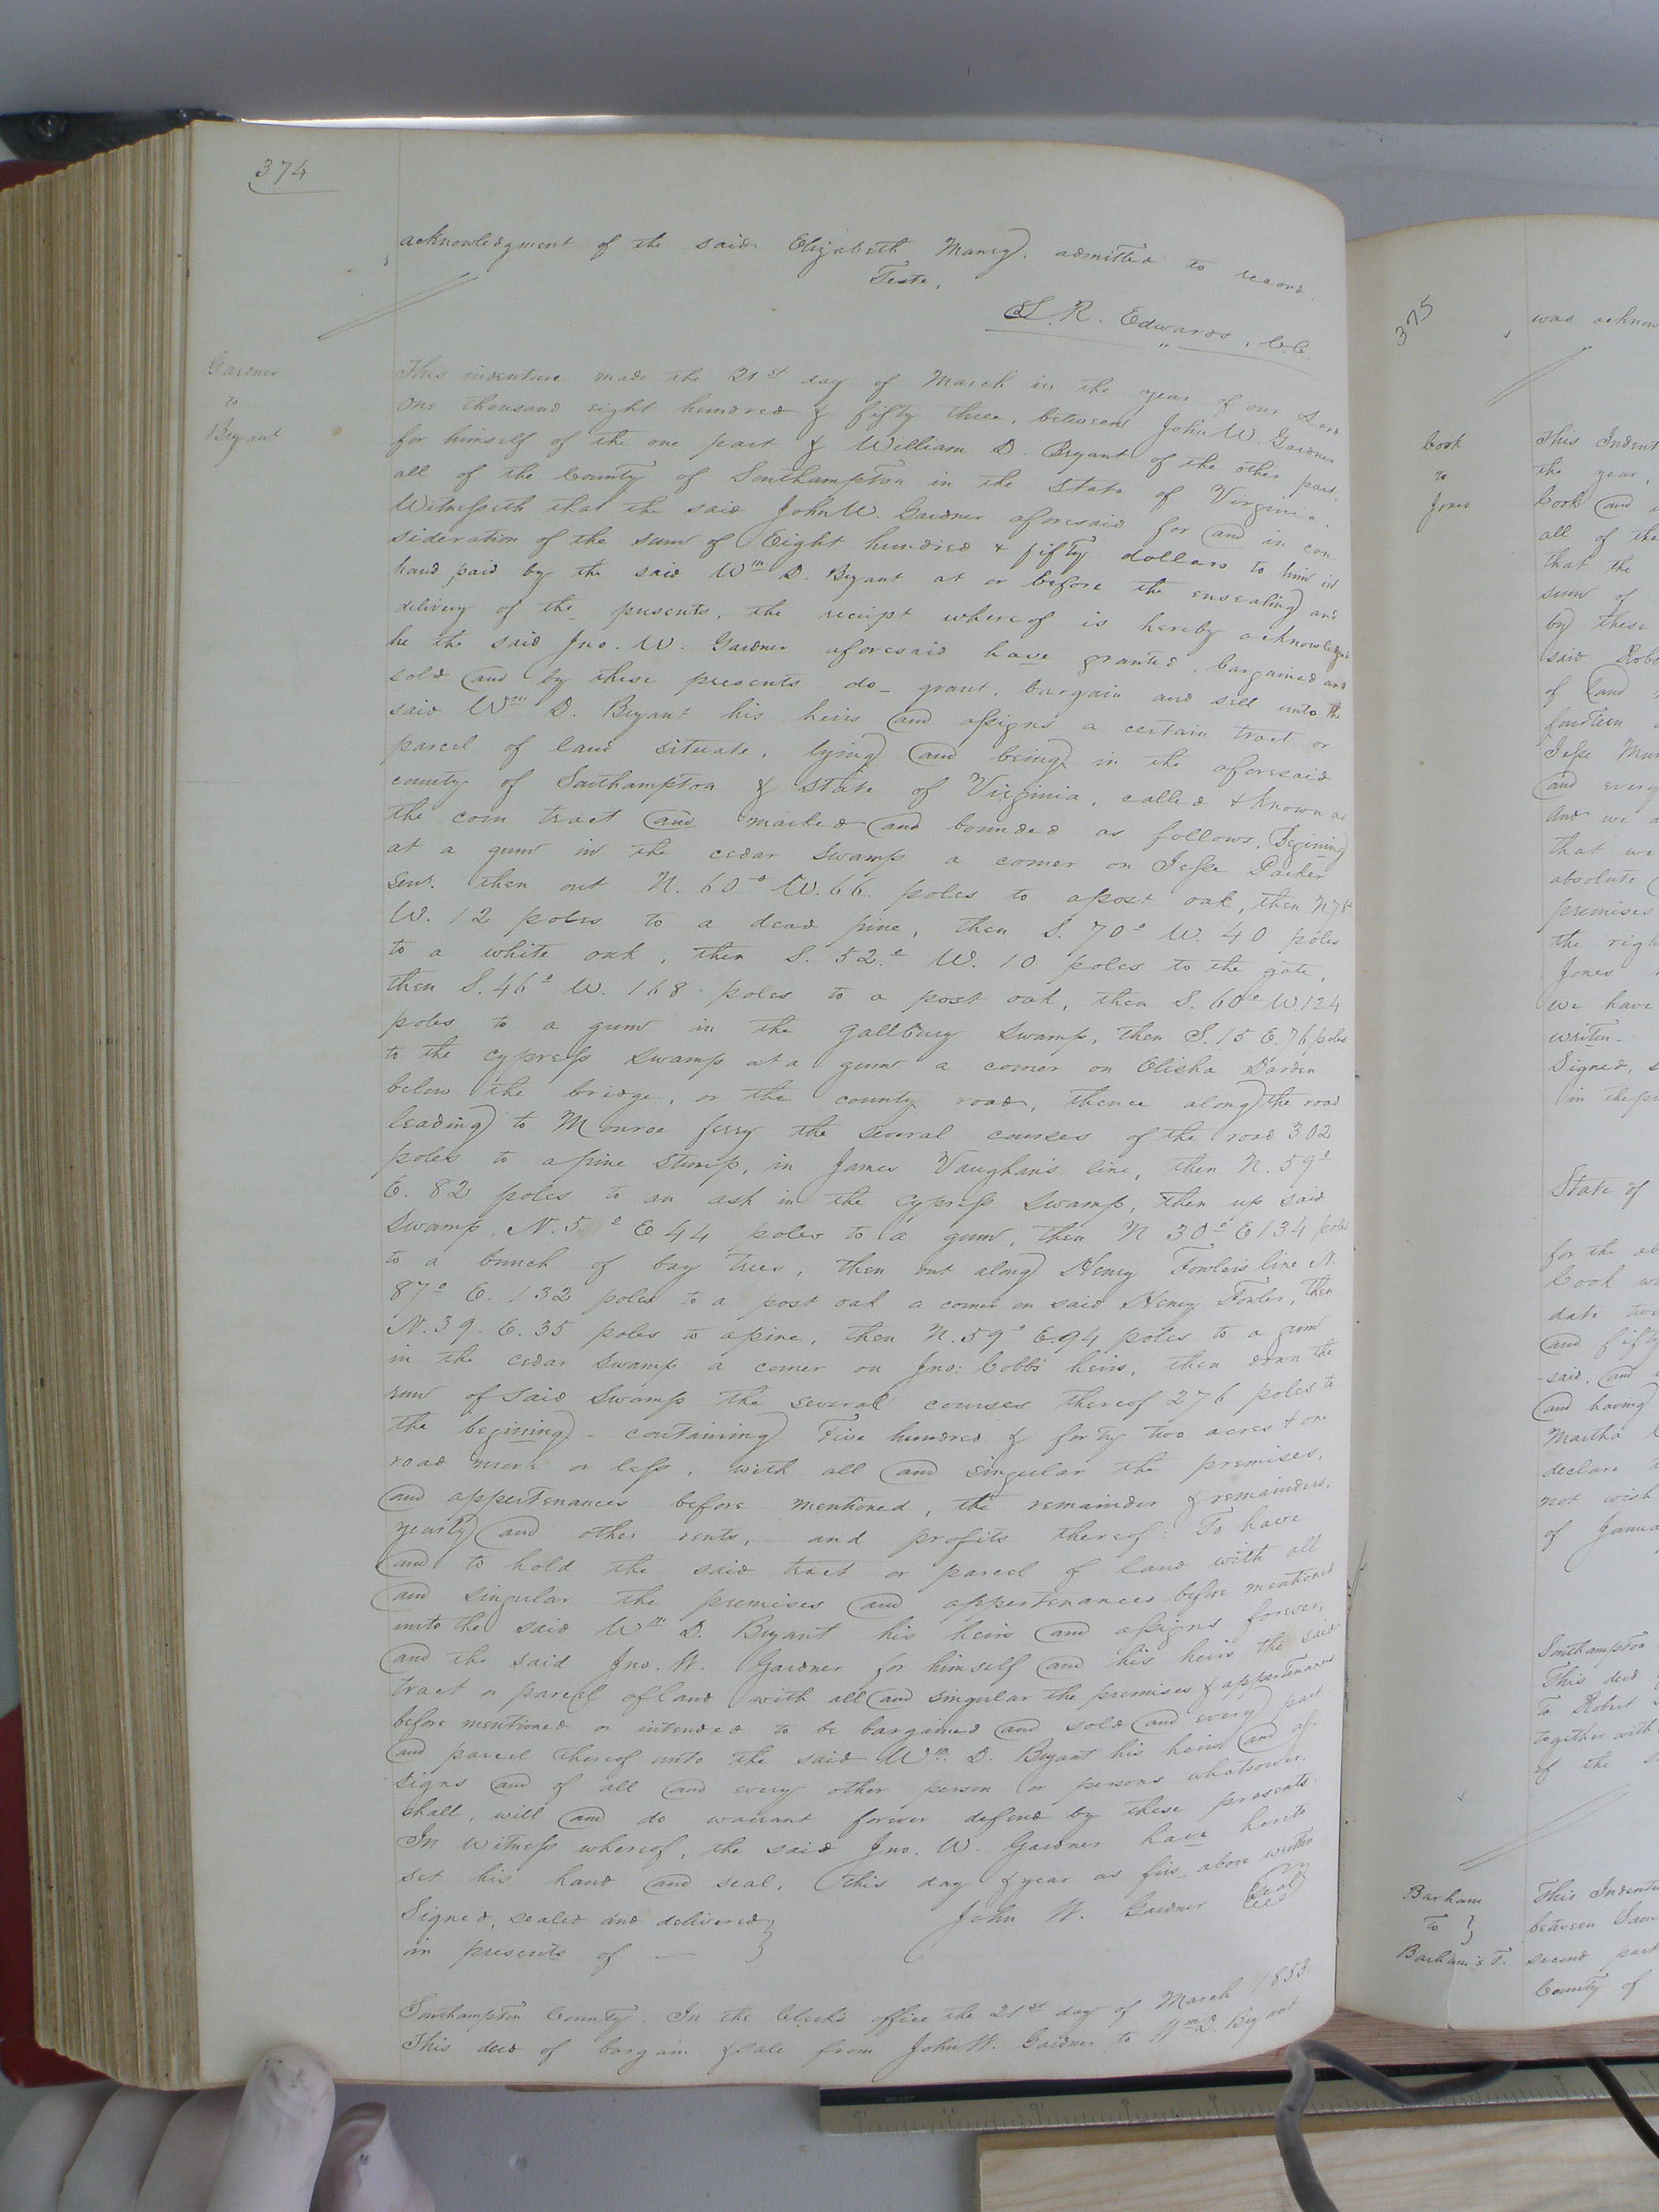 374
acknowledgment of the said Elizabeth Maney, admitted to record.
Teste,
L. R. Edwards, C.C.
Gardner
to
Bryant
This indenture made the 21st day of March in the year of our Lord
one thousand eight hundred & fifty three, between John W. Gardner
for himself of the one part & William D. Bryant of the other part,
all of the County of Southampton in the State of Virginia.
Witnesseth that the said John W. Gardner aforesaid for and in con
sideration of the sum of Eight hundred & fifty dollars to him in
hand paid by the said Wm D. Bryant at or before the ensealing and
delivery of the presents, the receipt whereof is hereby acknowledged
he the said Jno. W. Gardner aforesaid have granted, bargained and
sold and by these presents do grant, bargain and sell unto the
said Wm D. Bryant his heirs and assigns a certain tract or
parcel of land situate, lying and being in the aforesaid
county of Southampton & State of Virginia, called & known as
the corn tract and marked and bounded as follows, Begining
at a gum in the cedar swamp a corner on Jesse Parker
Senr. then out N. 60° W. 66. poles to a post oak, then
W. 12 poles to a dead pine, then S. 70° W. 40 poles
to a white oak, then S. 52.° W. 10 poles to the gate,
then S. 46° W. 168 poles to a post oak, then S. 60° W. 124
poles to a gum in the gallbury swamp, then S. 15 E. 76 poles
to the cypress swamp at a gum a corner on Elisha Darden
below the bridge, or the county road, thence along the road
leading to Monroe ferry the several courses of the road 302
poles to a pine stump, in James Vaughan's line, then N. 59°
E. 82 poles to an ash in the cypress swamp, then up said
swamp N. 5° E 44 poles to a gum, then N 30° E 134 poles
to a bunch of bay trees, then out along Henry Fowler's line N.
87° E. 132 poles to a post oak a corner on said Henry Fowler, then
N. 39. E. 35 poles to a pine, then N. 59° E. 94 poles to a gum
in the cedar swamp a corner on Jno: Cobb's heirs, then down the
run of said swamp the several courses thereof 276 poles to
the begining - containing Five hundred & forty two acres & one
road more or less, with all and singular the premises,
and appertenances before mentioned, the remainder & remainders,
yearly and other rents, and profits thereof: To have
and to hold the said tract or parcel of land with all
and singular the premises and appertenances before mentioned
unto the said Wm D. Bryant his heirs and assigns forever,
and the said Jno. W. Gardner for himself and his heirs the said
tract or parcel of land with all and singular the premises & appertenances
before mentioned or intended to be bargained and sold and every part
and parcel thereof unto the said Wm. D. Bryant his heirs and as-
signs and of all and every other person or persons whatsoever.
shall, will and do warrant forever defend by these presents.
In witness whereof, the said Jno. W. Gardner have hereto
set his hand and seal, this day & year as firs above written
Signed, sealed and delivered } John W. Gardner Seal
in presents of — }
Southampton County. In the Clerk's office the 21st day of March 1853.
This deed of bargain & sale from John W. Gardner to Wm D. Bryant
375
was acknow
Cook
to
Jones
This Indent
the year,
Cook and
all of the
that the
sum of
by these
said Rob
of land
fourteen
Jesse Mur
and every
and we
that we
absolute
premises
the righ
Jones
we have
written.
Signed, s
in the pr
State of
for the ab
Cook w
date
and fift
said, and
and having
Martha
declare
not wish
of Janua
Southampton
This deed
to Robert
together with
of the
Barham
to }
Barham's T.
This Indentu
between Sam
second part
County of